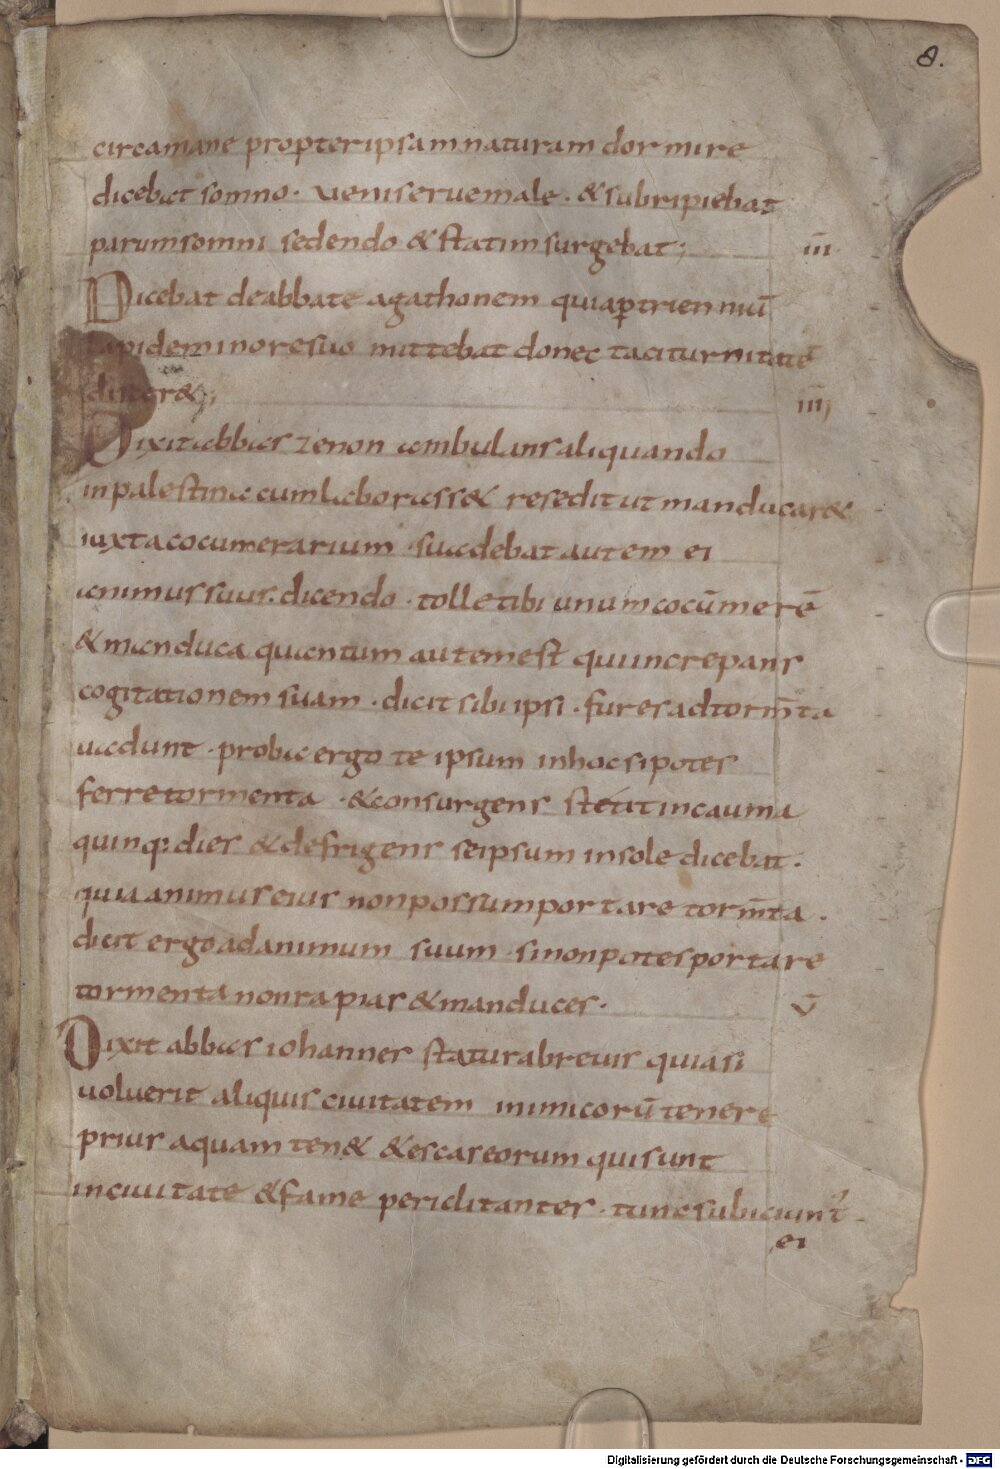 8.
circa mane propter ipsam naturam dormire
dicebat somno · veni serue male · & subripiebat
parum somni sedendo & statim surgebat ; III
Dicebat de abbate agathonem quia ꝑ trienniū
lapidem in ore suo mittebat donec taciturnitatē
disceret ; IIII
Dixit abbas zenon ambulans aliquando
in palestina cum laborass& resedit ut manducar&
iuxta cocumerarium · suadebat autem ei
animus suus · dicendo · tolle tibi unum cocūmerē
& manduca quantum autem est qui increpans
cogitationem suam · dicit sibi ipsi · fures ad torm̄ta
uadunt · proba ergo te ipsum in hoc si potes
ferre tormenta · & consurgens stetit in cauma
quinq: dies & defrigens seipsum in sole dicebat ·
quia animus eius non possum portare torm̄ta ·
dicit ergo ad animum suum · si non potes portare
tormenta non rapias & manduces · V
Dixit abbas iohannes statura breuis quia si
voluerit aliquis ciuitatem inimicorū tenere
prius aquam ten& & escas eorum qui sunt
in ciuitate & fame periclitantes · tunc subiciunt᷑
ei
Digitalisierung gefördert durch die Deutsche Forschungsgemeinschaft - DFG